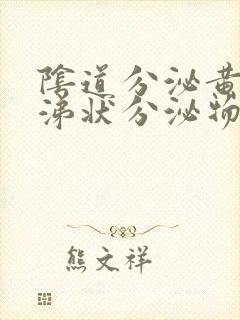 陰道分泌黄
涕狀分泌物
熊文祥